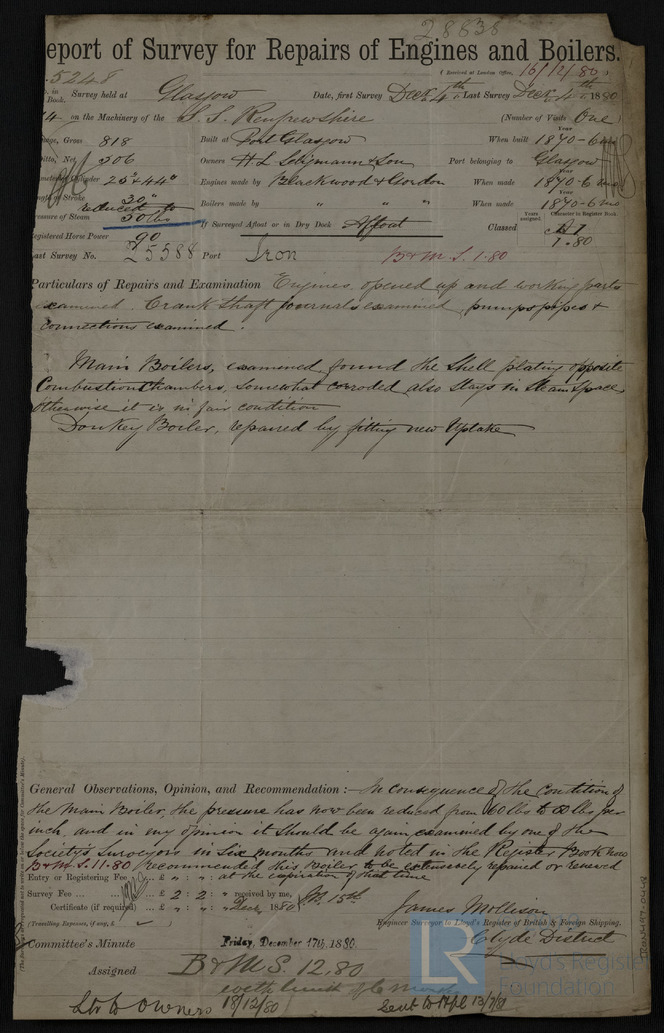 28638
eport of Survey for Repairs of Engines and Boilers.
(Received at London Office, 16/12/80)
5248
Survey held at Glasgow Date, first Survey Decr 4th Last Survey Decr 4th 1880
on the Machinery of the S.S. Renfrewshire (Number of Visits One)
Gross 818 Built at Port Glasgow When built 1870-6mo
Ditto, Net 506 Owners Part belonging to Glasgow
Cylinder 25" & 44" Engines made by Blackwood & Gordon When made 1870-6mo
of Stroke 30" Boilers made by " " When made 1870-6mo
reduced to
Pressure of Steam 50 lbs If Surveyed Afloat or in Dry Dock Afloat Classed A1
Years assigned. Character in Register Book
1.80
Registered Horse Power 90
Last Survey No. 25588 Port Iron B&M.S. 1.80
Particulars of Repairs and Examination Engines, opened up and working parts
examined. Crank Shaft Journals examined, pumps pipes &
connections examined.
Main Boilers, examined, found the shell plating opposite
Combustion Chambers, somewhat corroded also stays in Steam Space,
otherwise it is in fair condition
Donkey Boiler, repaired by fitting new Uptake
General Observations, Opinion, and Recommendation :— In consequence of the condition of
the Main Boiler, the pressure has now been reduced from 60 lbs to 50 lbs per
inch, and in my opinion it should be again examined by one of the
Society's Surveyors in Six months and noted in the Register Book now
B&M.S. 11.80 recommended this Boiler to be extensively repaired or renewed
at the expiration of that time
Entry or Registering Fee ... £ " : " :
Survey Fee ... £ 2 : 2 : " received by me,
Certificate (if required) ... £ " : " : " Decr 15th 1880
(Travelling Expenses, if any, £
James Mollison
Engineer Surveyor to Lloyd's Register of British & Foreign Shipping.
Clyde District
Committee's Minute Friday, December 17th, 1880.
Assigned B&M.S. 12.80
with limit of 6 months
Ltr to Owners 18/12/80
LR
Lloyd's Register
Foundation